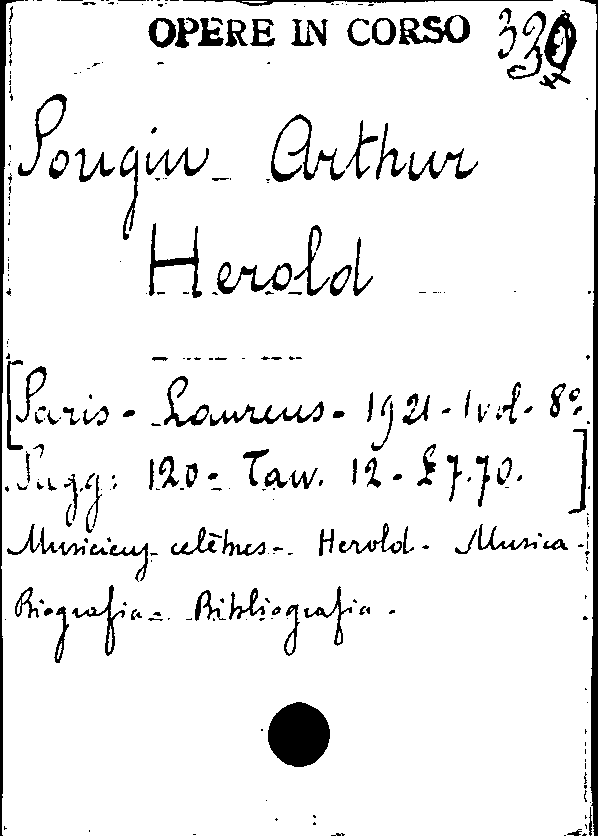 OPERE IN CORSO
Pougin Arthur
Herold
[Paris - Laurens - 1921 - 1 vol. 8º.
Pagg: 120 - Tav. 12 - £ 7.70.]
Musiciens celèbres - Herold - Musica -
Biografia - Bibliografia -